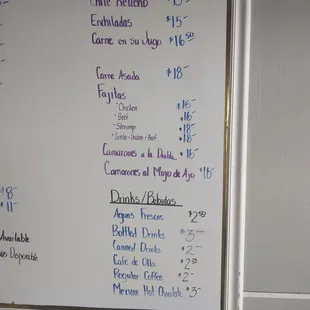 Chile Relleno
Enchiladas $15-
Carne en su Jugo $16.50
Carne Asada $18-
Fajitas
• Chicken $16-
• Beef $18-
• Shrimp $18-
• Combo-Chicken/Beef $18-
Camarones a la Diabla $16-
Camarones al Mojo de Ajo $16-
$8-
$11-
Available
Disponible
Drinks/Bebidas
Aguas Frescas
Bottled Drinks $3-
Canned Drinks $2-
Café de Olla
Regular Coffee $2-
Mexican Hot Chocolate $3-